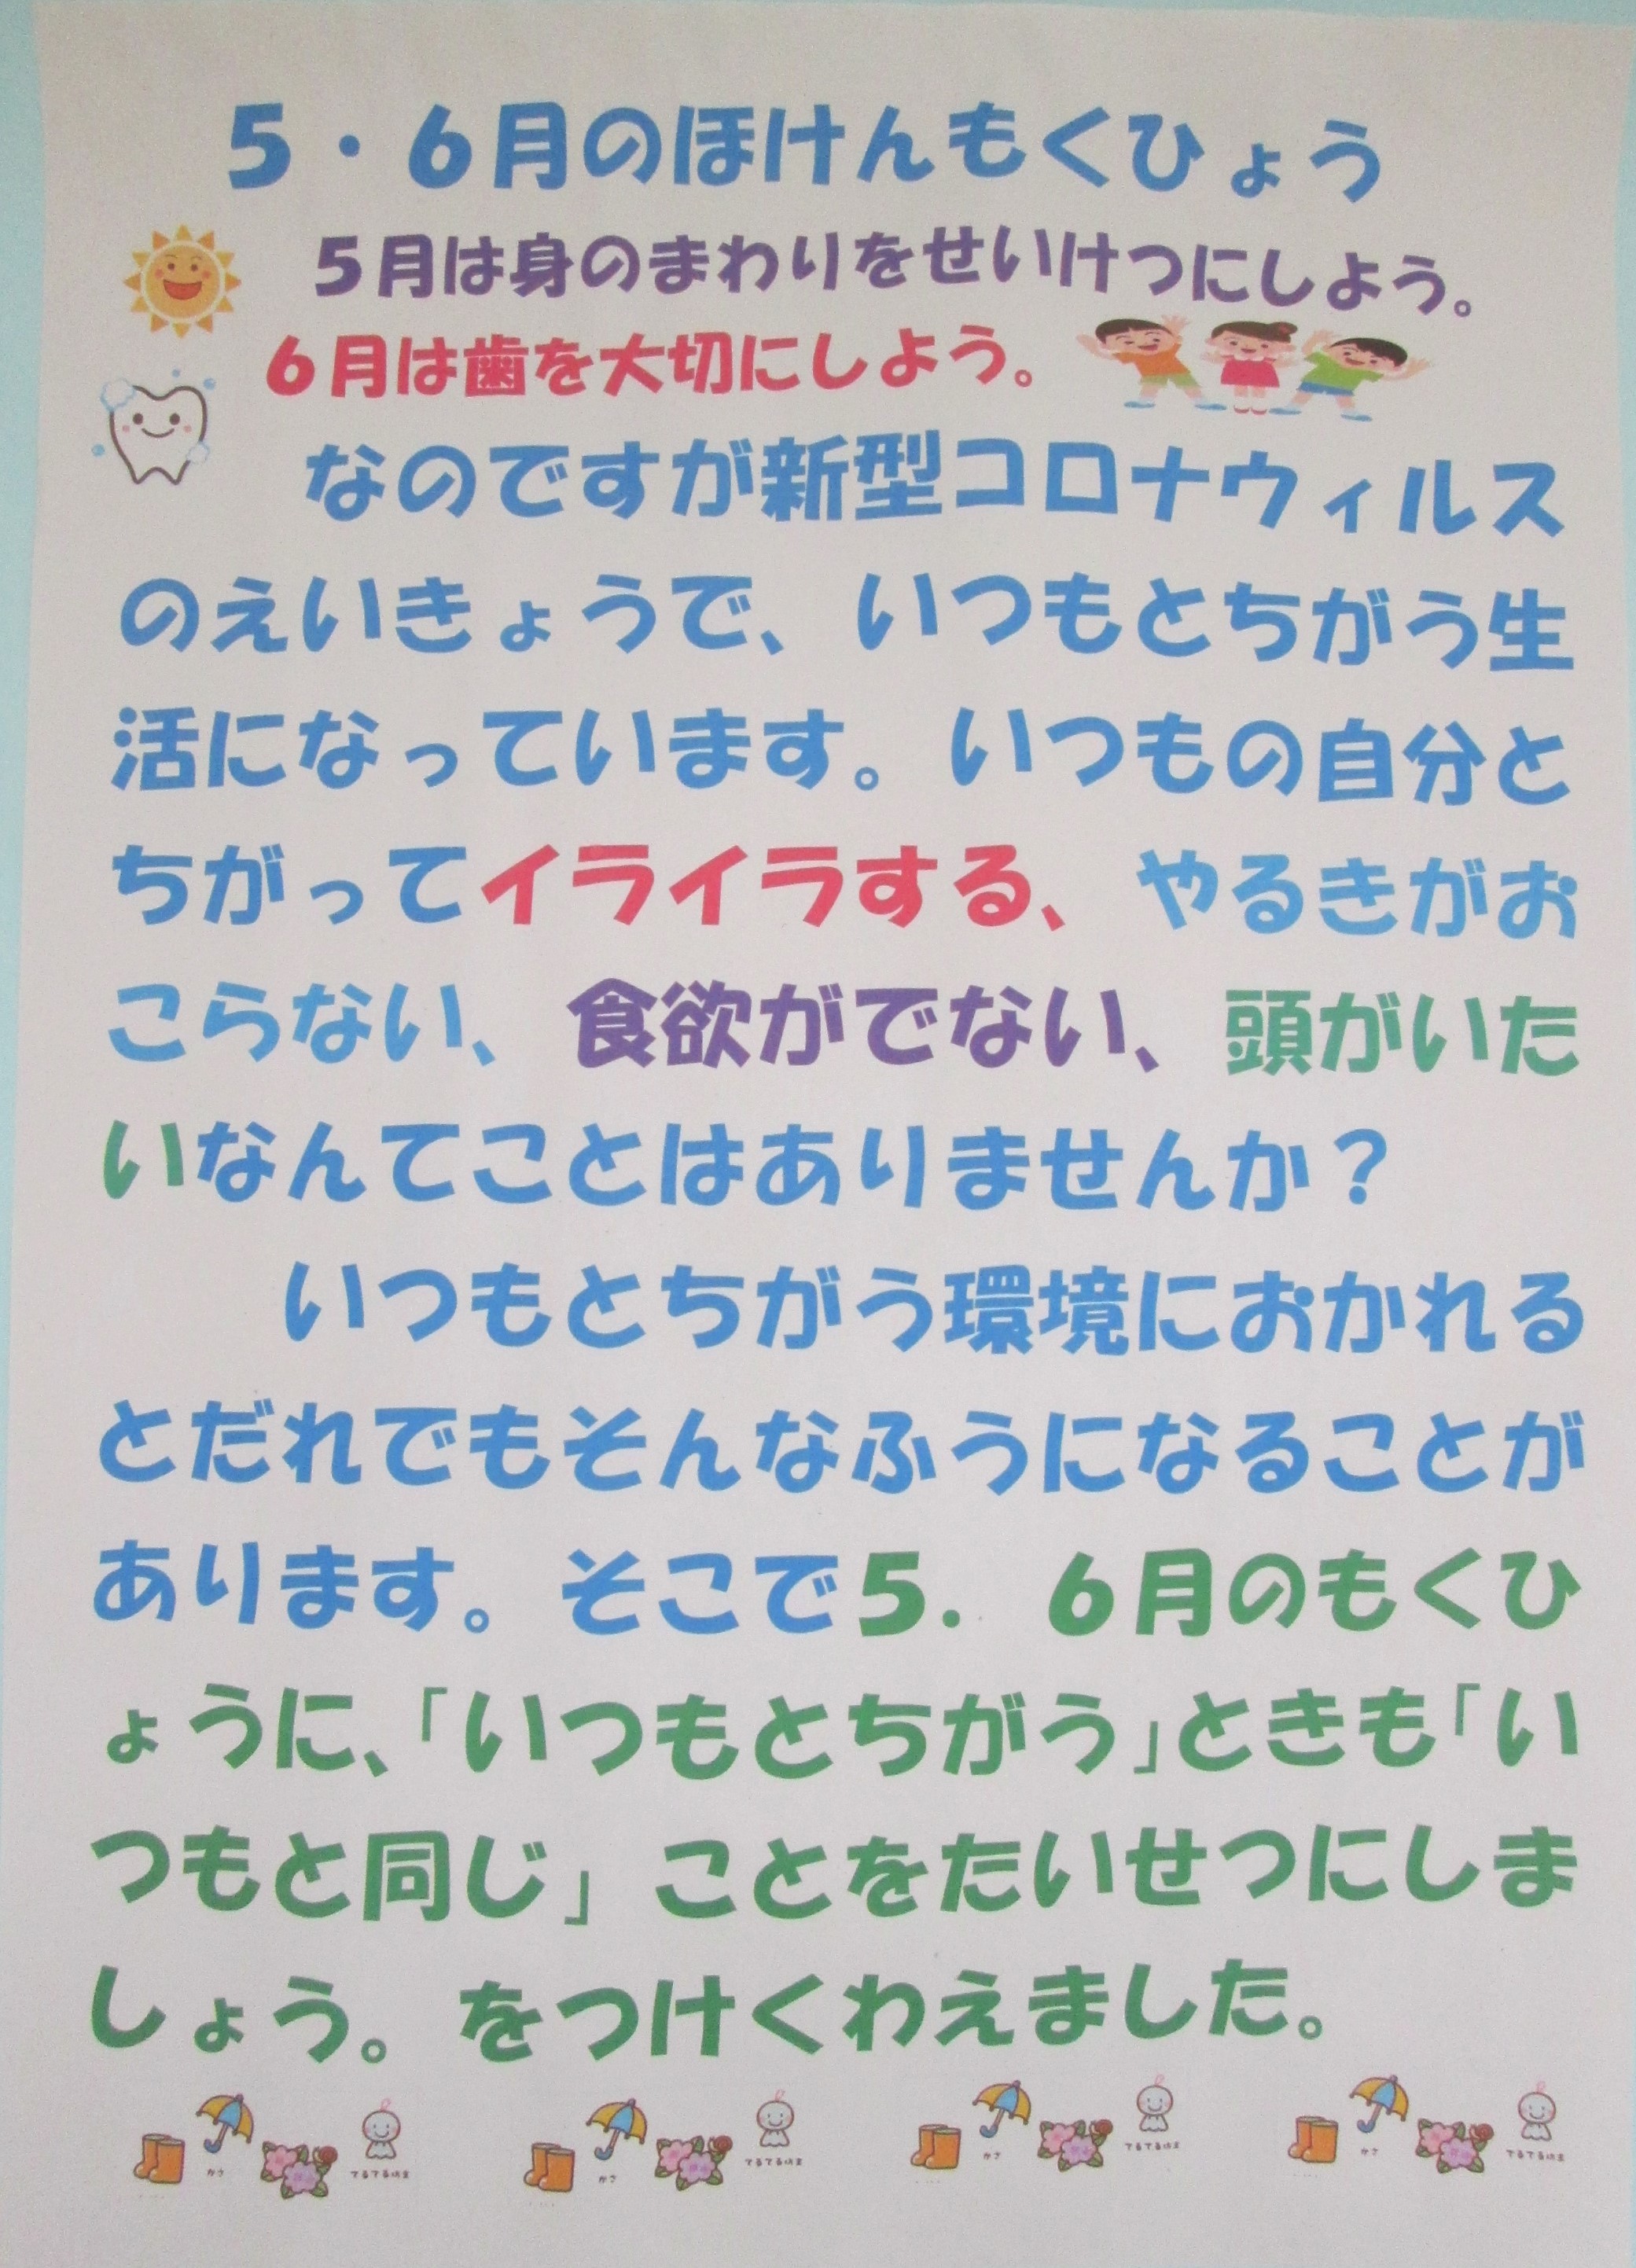 5・6月のほけんもくひょう
5月は身のまわりをせいけつにしよう。
6月は歯を大切にしよう。
なのですが新型コロナウィルス
のえいきょうで、いつもとちがう生
活になっています。いつもの自分と
ちがってイライラする、やるきがお
こらない、食欲がでない、頭がいた
いなんてことはありませんか？
いつもとちがう環境におかれる
とだれでもそんなふうになることが
あります。そこで5．6月のもくひ
ょうに、「いつもとちがう」ときも「い
つもと同じ」ことをたいせつにしま
しょう。をつけくわえました。
かさ てるてる坊主 かさ てるてる坊主 かさ てるてる坊主 かさ てるてる坊主